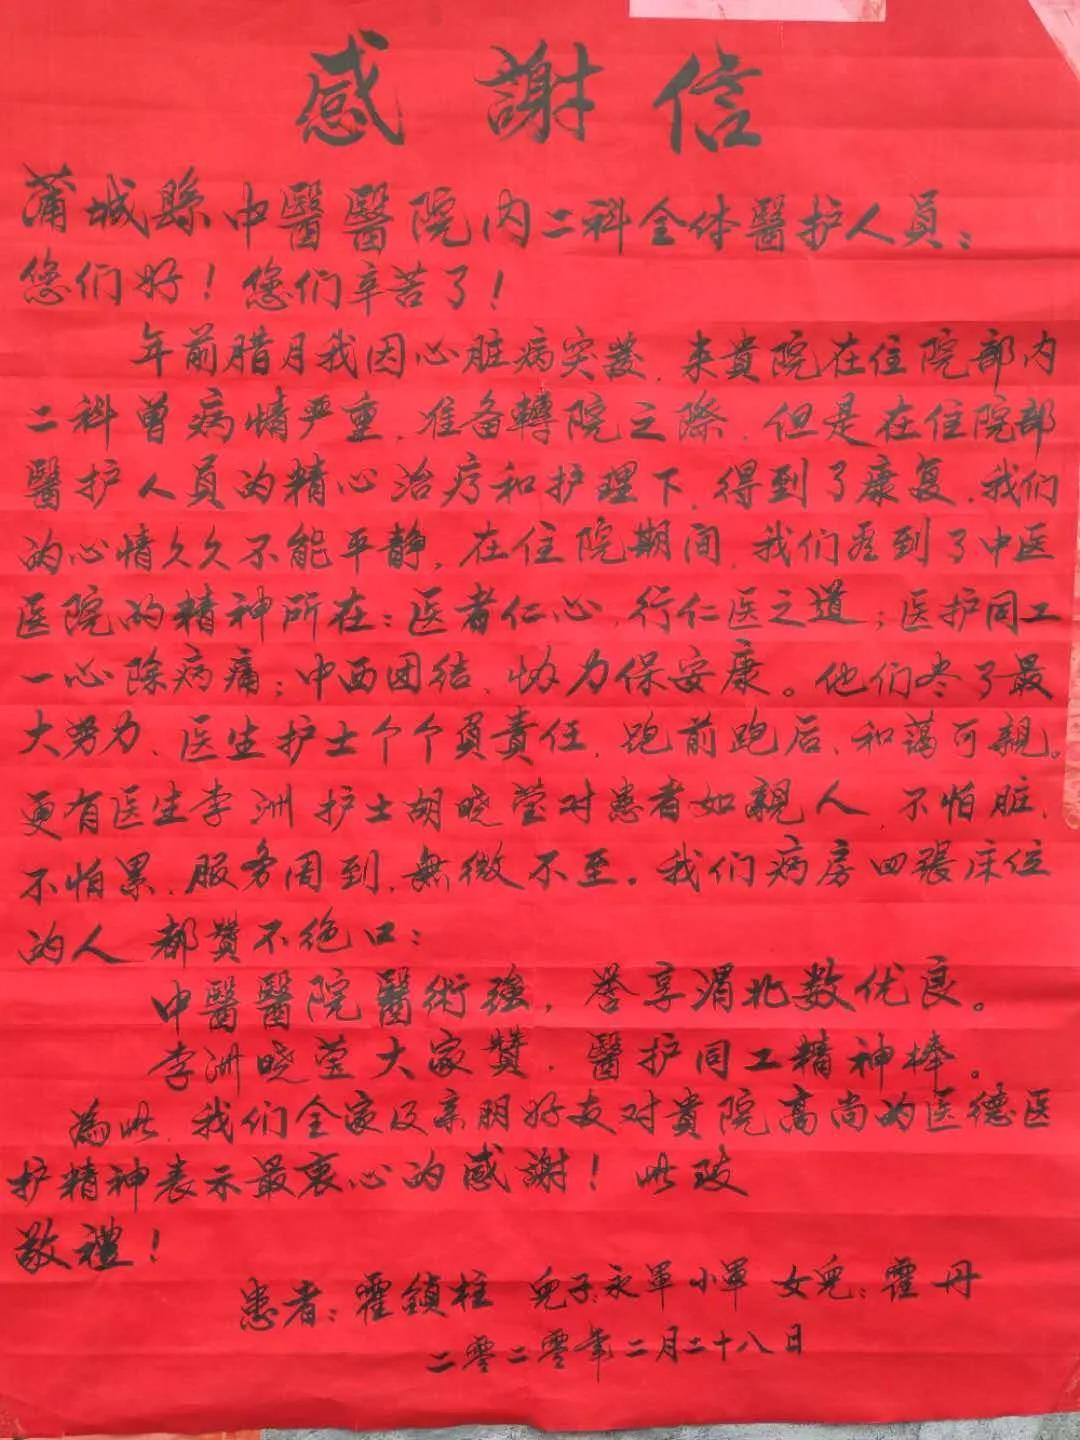 感謝信
蒲城縣中醫醫院内二科全体醫护人員：
您们好！您们辛苦了！
年前腊月我因心脏病突發，来貴院在住院部内
二科曾病情严重，准备轉院之際，但是在住院部
醫护人員的精心治疗和护理下，得到了康复，我们
的心情久久不能平静。在住院期间，我们看到了中医
医院的精神所在：医者仁心，行仁医之道；医护同工
一心除病痛；中西团结，协力保安康。他们尽了最
大努力、医生护士个个負責任，跑前跑后，和蔼可親。
更有医生李洲护士胡晓莹对患者如親人，不怕脏，
不怕累，服务周到，無微不至。我们病房四張床位
的人都贊不绝口：
中醫醫院醫術強，誉享渭北数优良。
李洲晓莹大家贊，醫护同工精神棒。
為此，我们全家及亲朋好友对貴院高尚的医德医
护精神表示最衷心的感謝！此致
敬禮！
患者：霍鎮柱 兒子：永軍小軍 女兒：霍丹
二零二零年二月二十八日